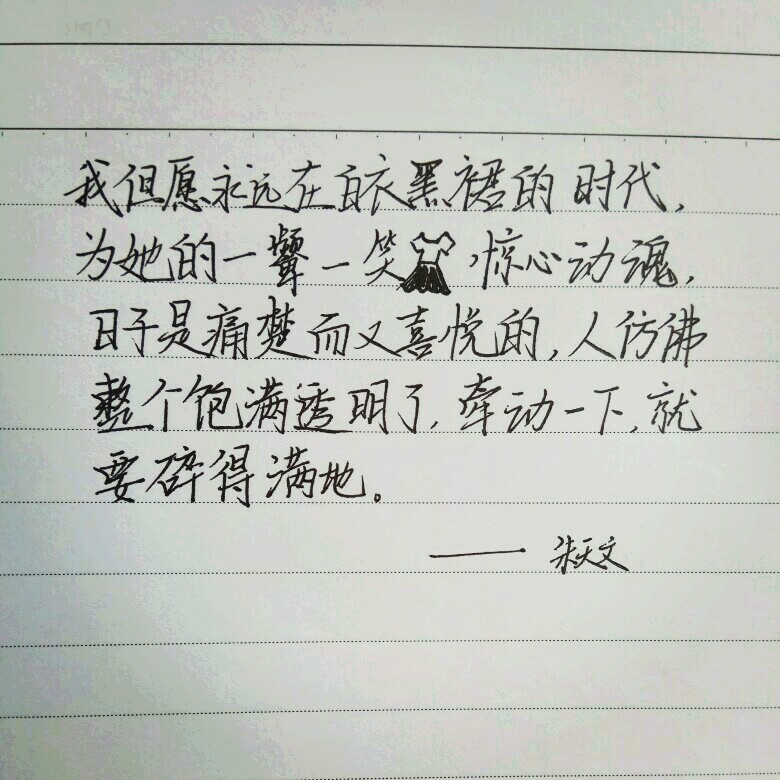 我但愿永远在白衣黑裙的时代,
为她的一颦一笑,惊心动魂,
日子是痛楚而又喜悦的,人仿佛
整个饱满透明了,牵动一下,就
要碎得满地。
—— 朱天文